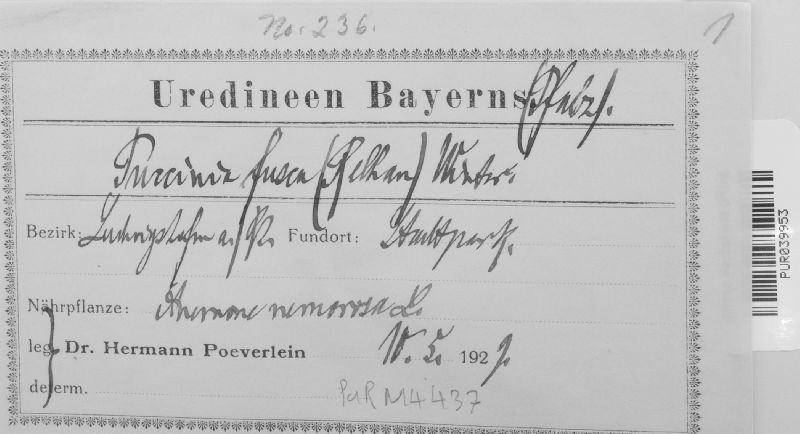 No. 236.
1
Uredineen Bayerns (Pfalz).
Puccinia fusca (Relhan) Winter.
Bezirk: Ludwigshafen a./Rh. Fundort: Stadtpark.
Nährpflanze: Anemone nemorosa L.
leg. Dr. Hermann Poeverlein 10. 5. 1929.
determ.
PUR M4437
PUR039953